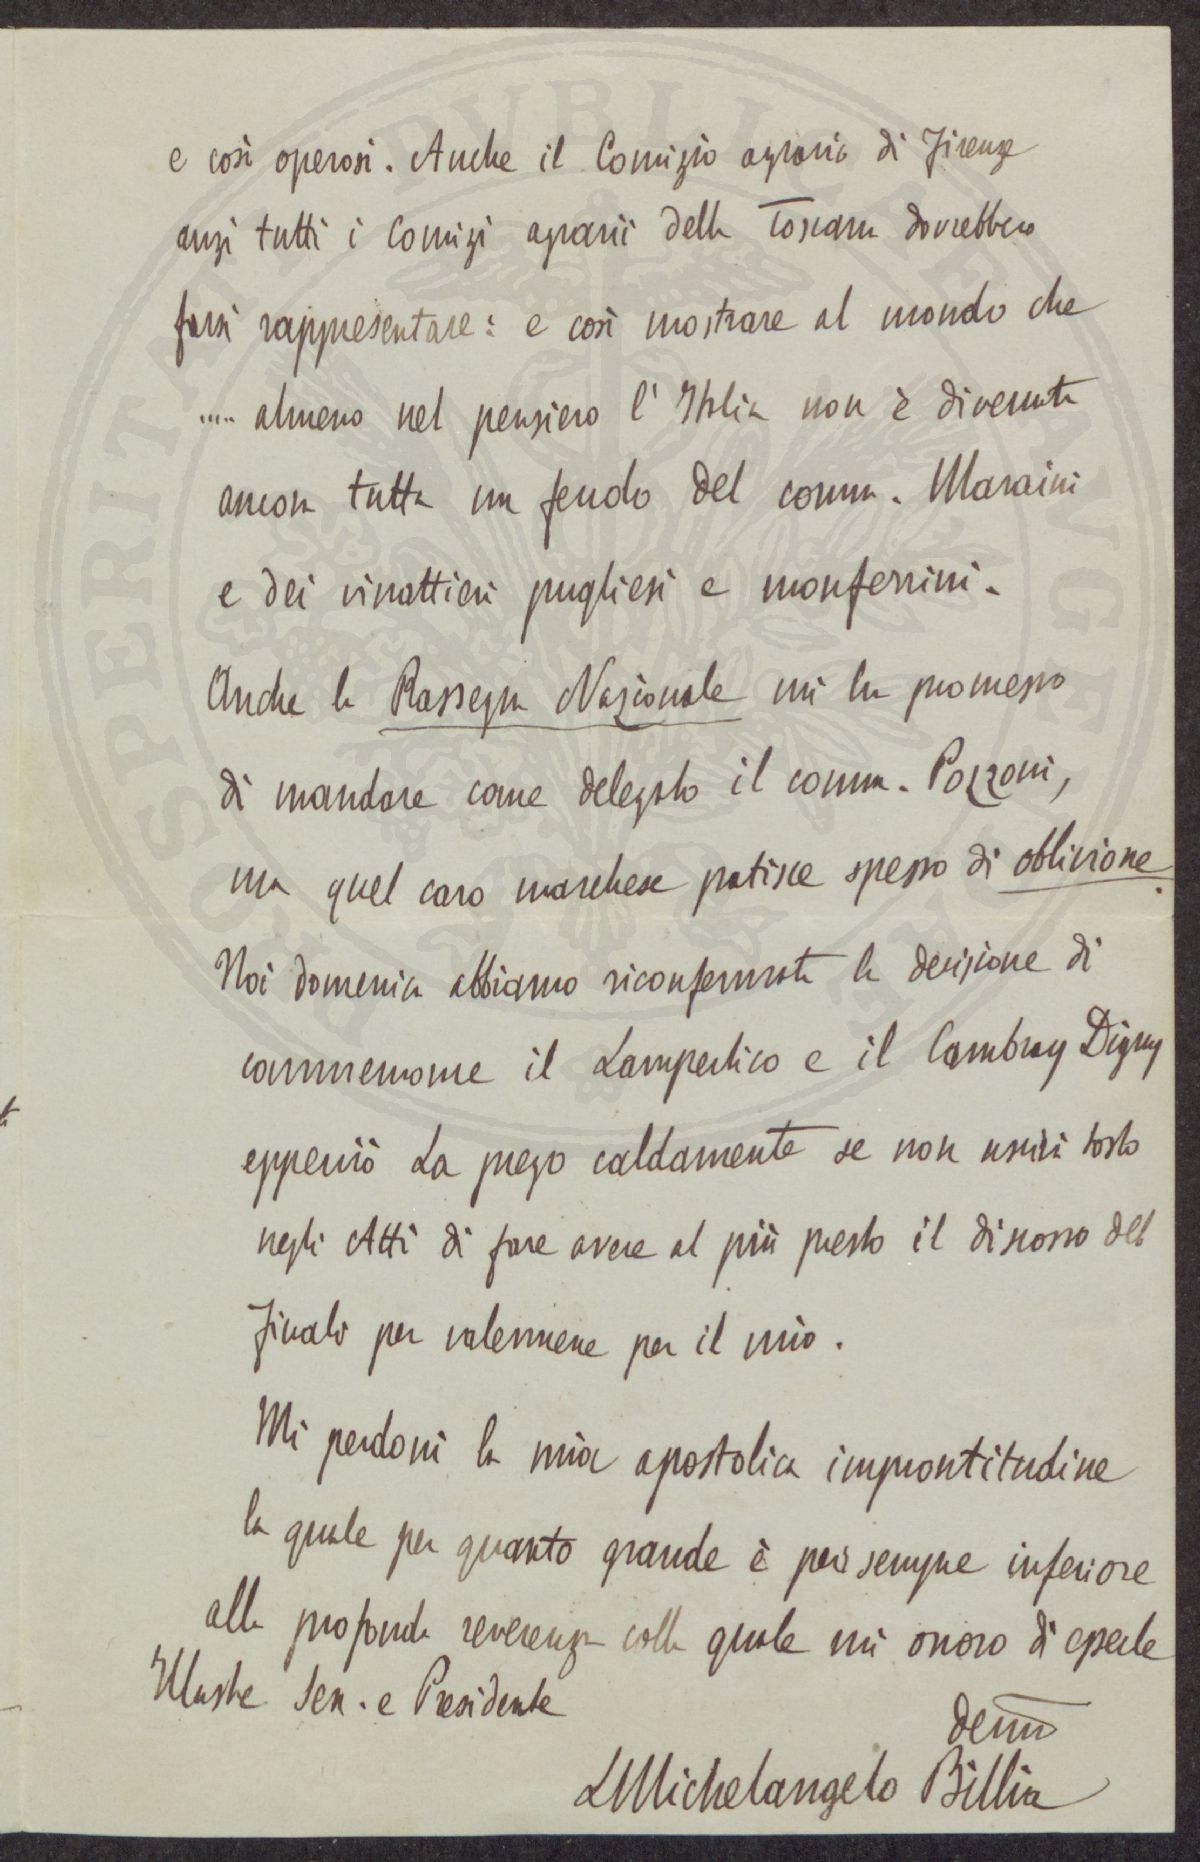 e così operosi. Anche il Comizio agrario di Firenze
anzi tutti i Comizi agrarii della Toscana dovrebbero
farsi rappresentare: e così mostrare al mondo che
.... almeno nel pensiero l'Italia non è divenuta
ancora tutta un feudo del comm. Maraini
e dei vinattieri pugliesi e monferrini.
Anche la Rassegna Nazionale mi ha promesso
di mandare come delegato il comm. Pozzoni,
ma quel caro marchese patisce spesso di oblivione.
Noi domenica abbiamo riconfermata la decisione di
commemorare il Lampertico e il Cambray Digny
epperciò La prego caldamente se non uscirà tosto
negli Atti di fare avere al più presto il discorso del
Finali per valermene per il mio.
Mi perdoni la mia apostolica improntitudine
la quale per quanto grande è però sempre inferiore
alla profonda reverenza colla quale mi onoro di esserle
Illustre Sen. e Presidente
devmo
LMichelangelo Billia
PROSPERITATI PVBLICAE AVGENDAE